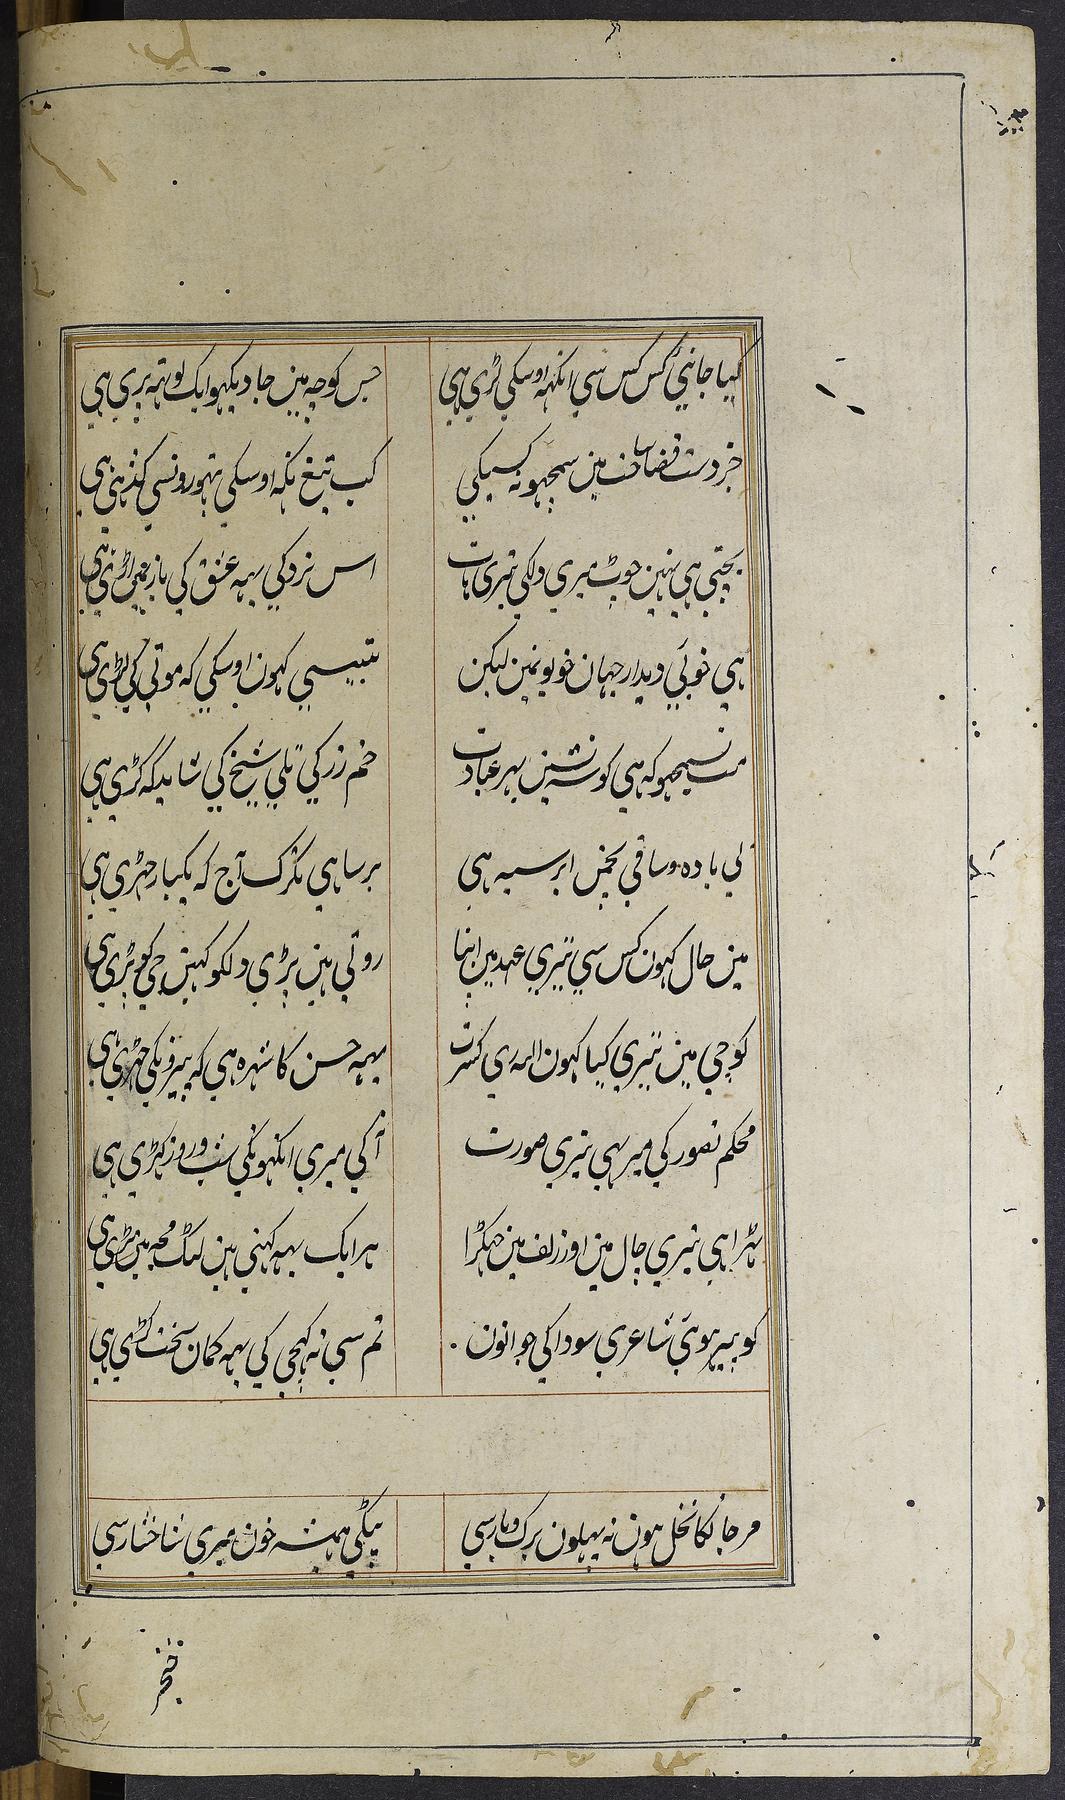 کیا جانئی کس کس سی انکہہ اوسکی لڑی ہی جس کوچہ مین جا دیکہو ایک لوتہہ پری ہی
جز دست قضا ساخت مین سمجہو نہ کسیکی کب تیغ نکہ اوسکی تہورونسی
بچتی ہی نہین چوٹ میری دلکی تیری ہات اس نردکی یہہ عشق کی بازیمین اڑی ہی
ہی خوبی دیدار جہان خوبونمین لیکن بتیسی کہون اوسکی کہ موتی کی لڑی ہی
مت سمجہو کہ ہی کوشہ نشین بہر عبادت خم زر کی تلی شیخ کی شاید کہ کڑی ہی
لی بادہ و ساقی ابر سیہ ہی برسا ہی آج کہ یکبار جہڑی ہی
مین حال کہون کس سی تیری عہد مین اپنا روتی ہین پڑی دلکو کہین جی کو پڑی ہی
کوچی مین تیری کیا کہون اللہ ری کثرت یہہ حسن کا شہرہ ہی کہ پیرونکی جہڑی ہی
محکم تصور کی میر بہی تیری صورت آکی میری انکہونکی شب و روز کہڑی ہی
ٹہرا ہی تیری چال مین اور زلف مین جہکڑا ہر ایک یہہ کہنی ہین لٹک مجہہ مین بڑی ہی
کو پیر ہوئی شاعری سودا کی جوانون تم سی نہ کہچی کی یہہ کمان سخت کڑی ہی
مرجانکا نخل ہون نہ پہلون برک و بار سی ٹپکی ہمیشہ خون میری شاخسار سی
خنجر